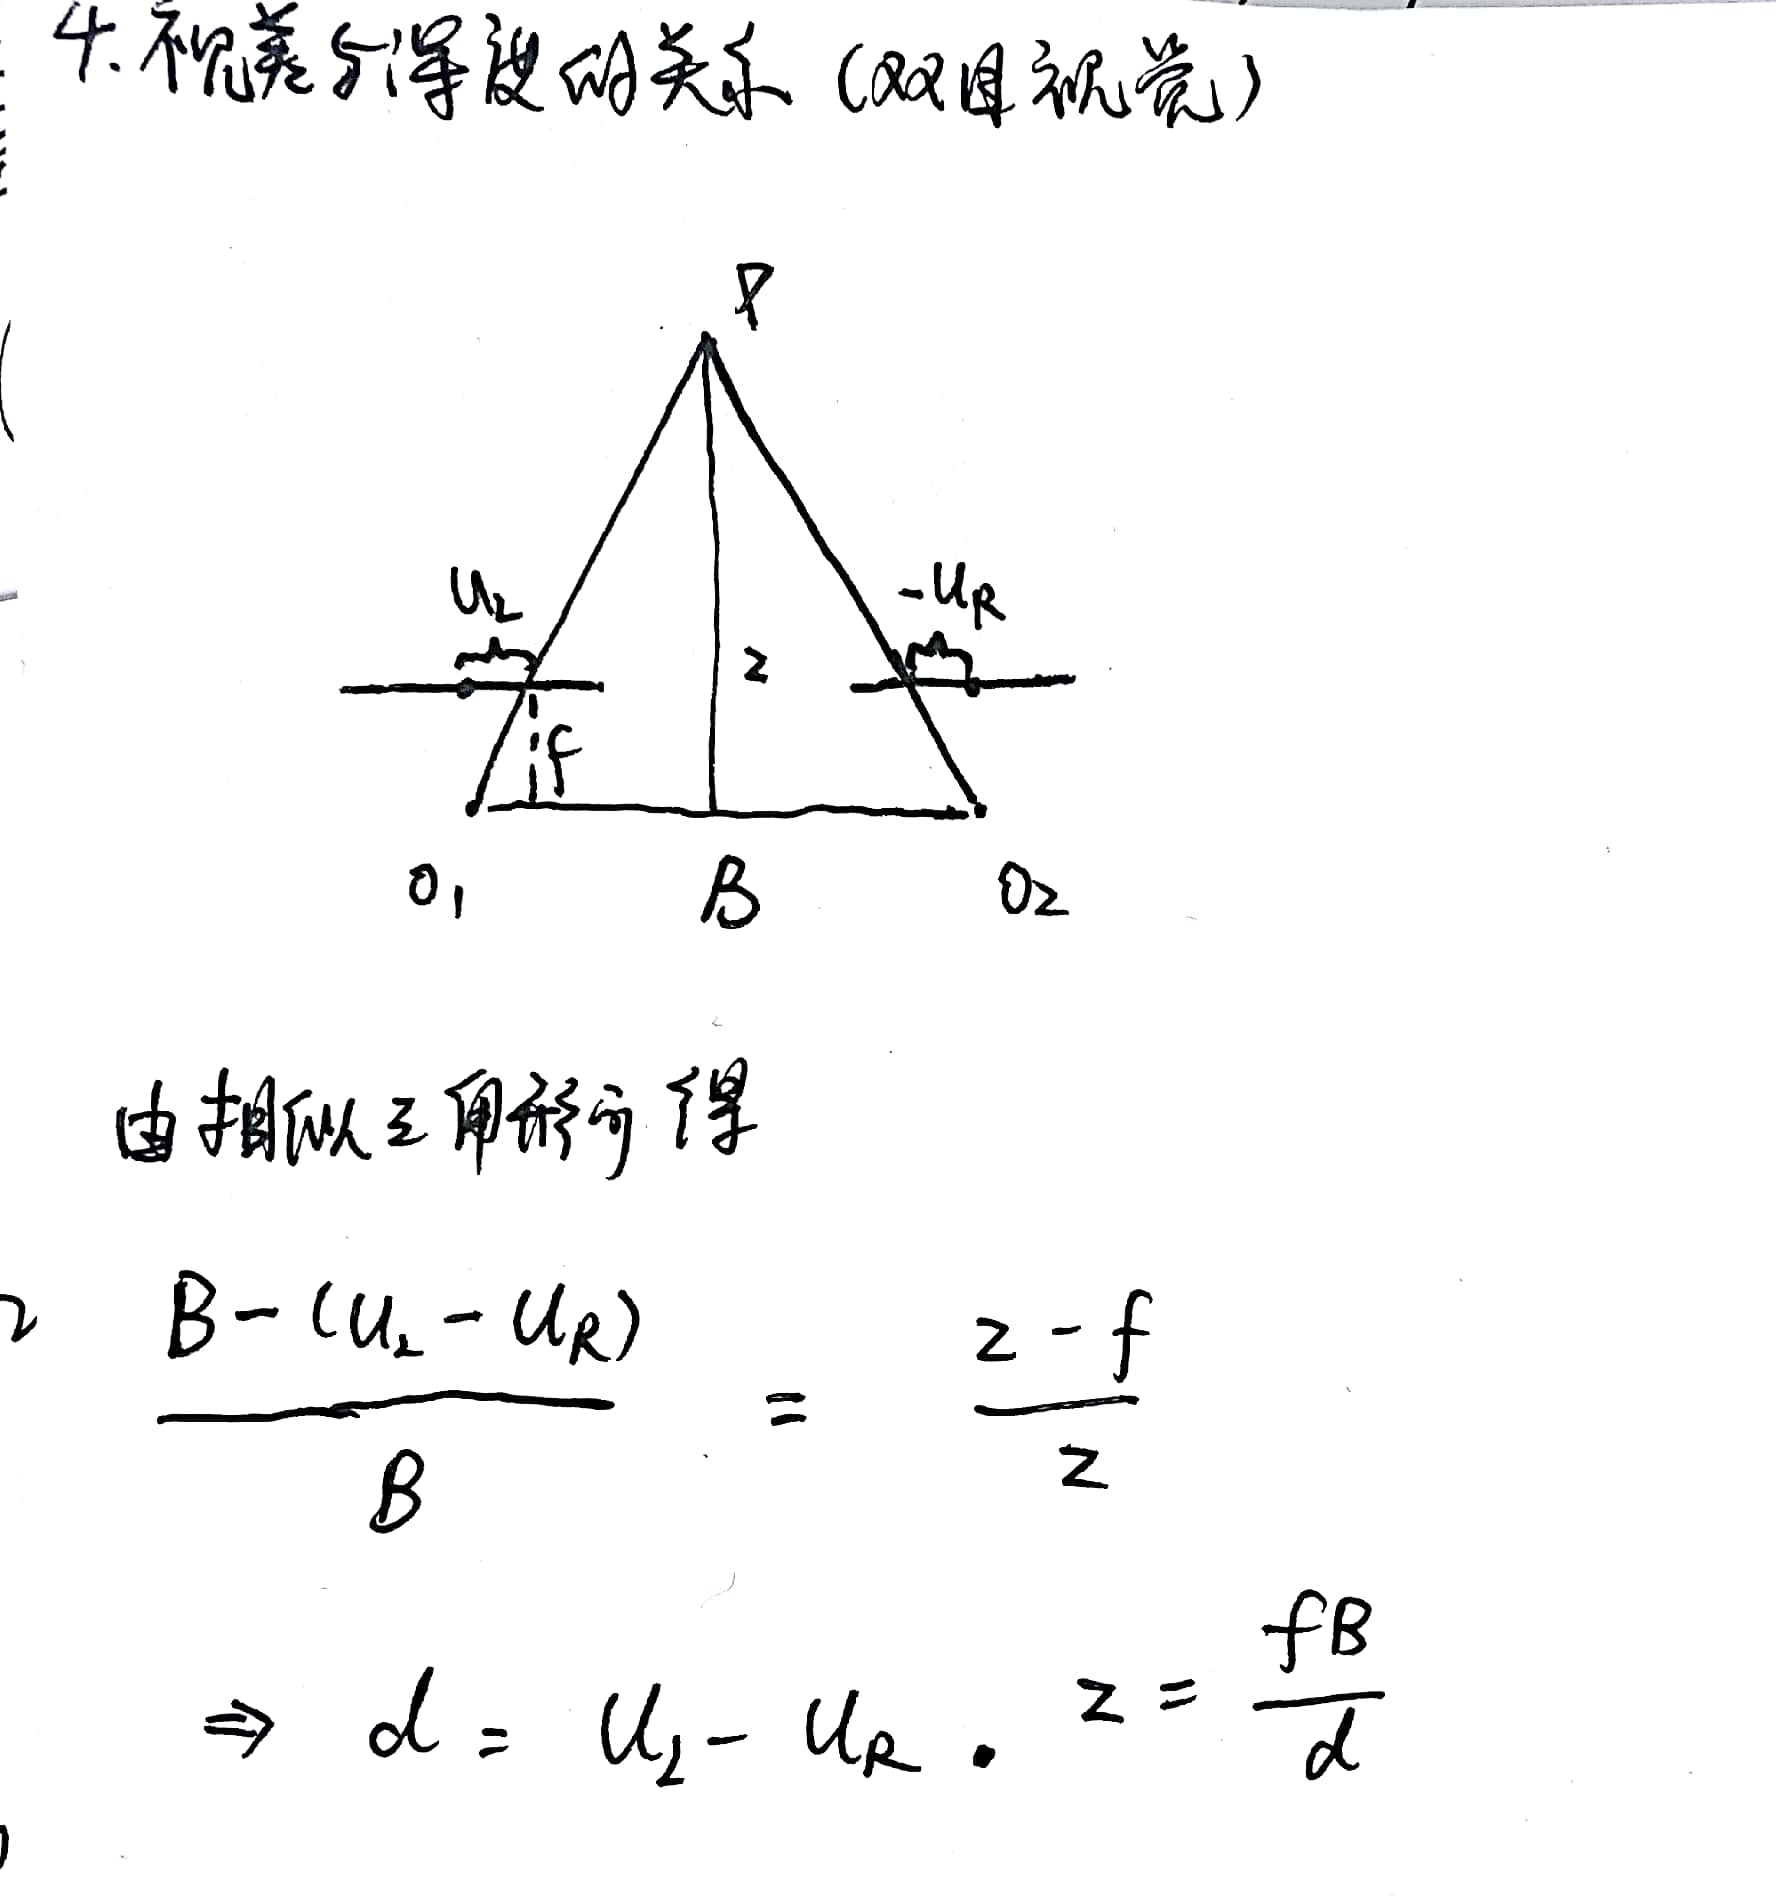 4. 视差与深度的关系（双目视觉）
P
U_L
-U_R
z
f
O_1 B O_2
由相似三角形可得
\frac{B-(U_L-U_R)}{B} = \frac{z-f}{z}
⇒ d = U_L - U_R . z = \frac{fB}{d}